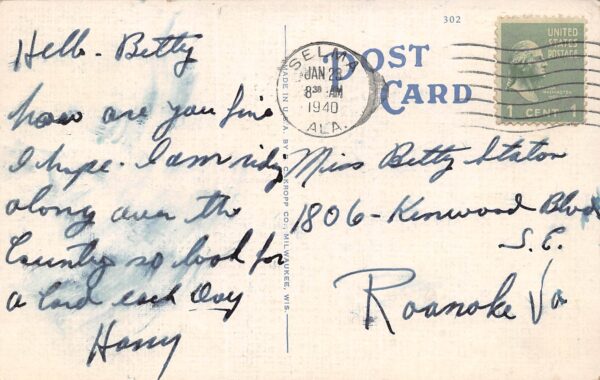 302
POST
CARD
SELMA
JAN 23
8 30 AM
1940
ALA.
UNITED
STATES
POSTAGE
WASHINGTON
1 CENT 1
Hello - Betty
how are you fine
I hope. I am ridg
along over the
Country so look for
a Card each Day
Harry
MADE IN U.S.A. BY E. C. KROPP CO., MILWAUKEE, WIS.
Miss Betty Staton
1806 - Kenwood Blvd
S.E.
Roanoke Va